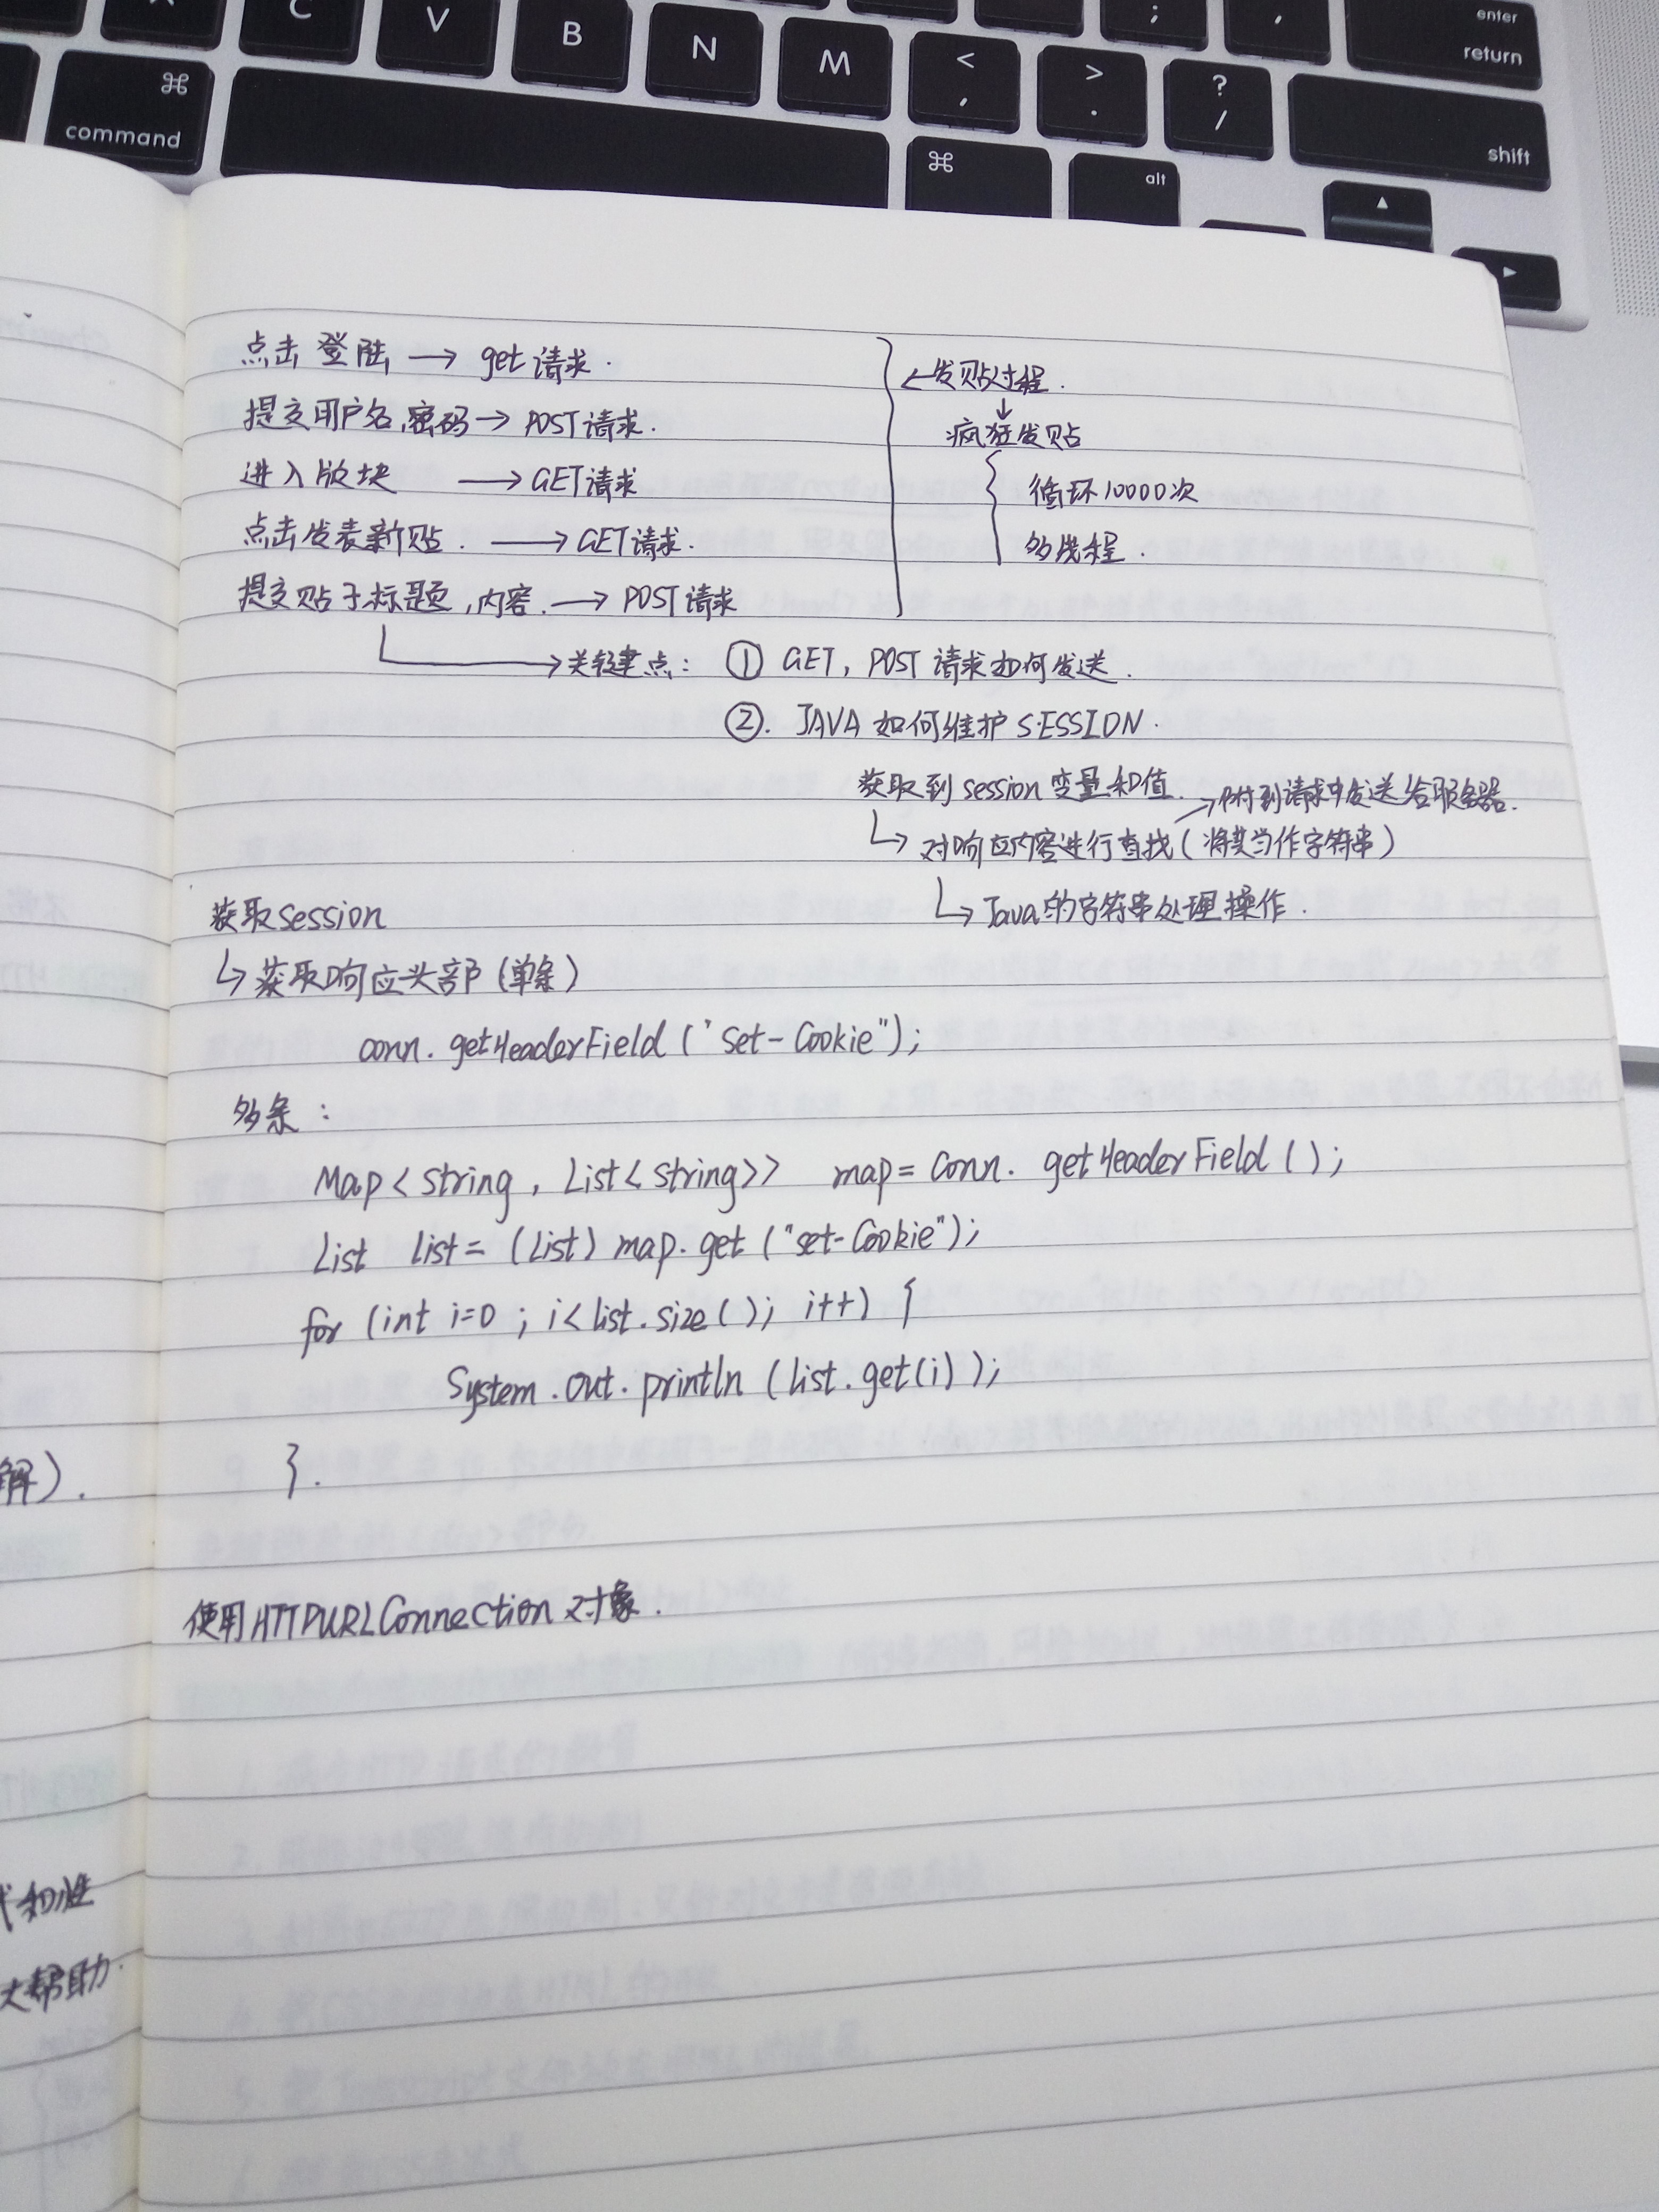 C V B N M < , > . ? / ; , enter return
⌘ command ⌘ alt shift
点击登陆 → get 请求.
提交用户名,密码 → POST请求.
进入版块 → GET请求
点击发表新贴. → GET请求.
提交贴子标题,内容. → POST请求
← 发贴过程.
↓
疯狂发贴
循环10000次
多线程.
→ 关键点: ① GET, POST 请求如何发送.
②. JAVA 如何维护 SESSION.
获取到 session 变量和值. → 附到请求中发送给服务器.
↳ 对响应内容进行查找(将其当作字符串)
↳ Java的字符串处理操作.
获取session
↳ 获取响应头部(单条)
conn. getHeaderField ("Set-Cookie");
多条:
Map< String, List< String>> map= conn. getHeaderField ();
List list= (List) map. get ("set-Cookie");
for (int i=0 ; i< list.size (); i++) {
System.out.println (list.get(i));
}.
使用HTTPURLConnection 对象.
解).
和性
大帮助.